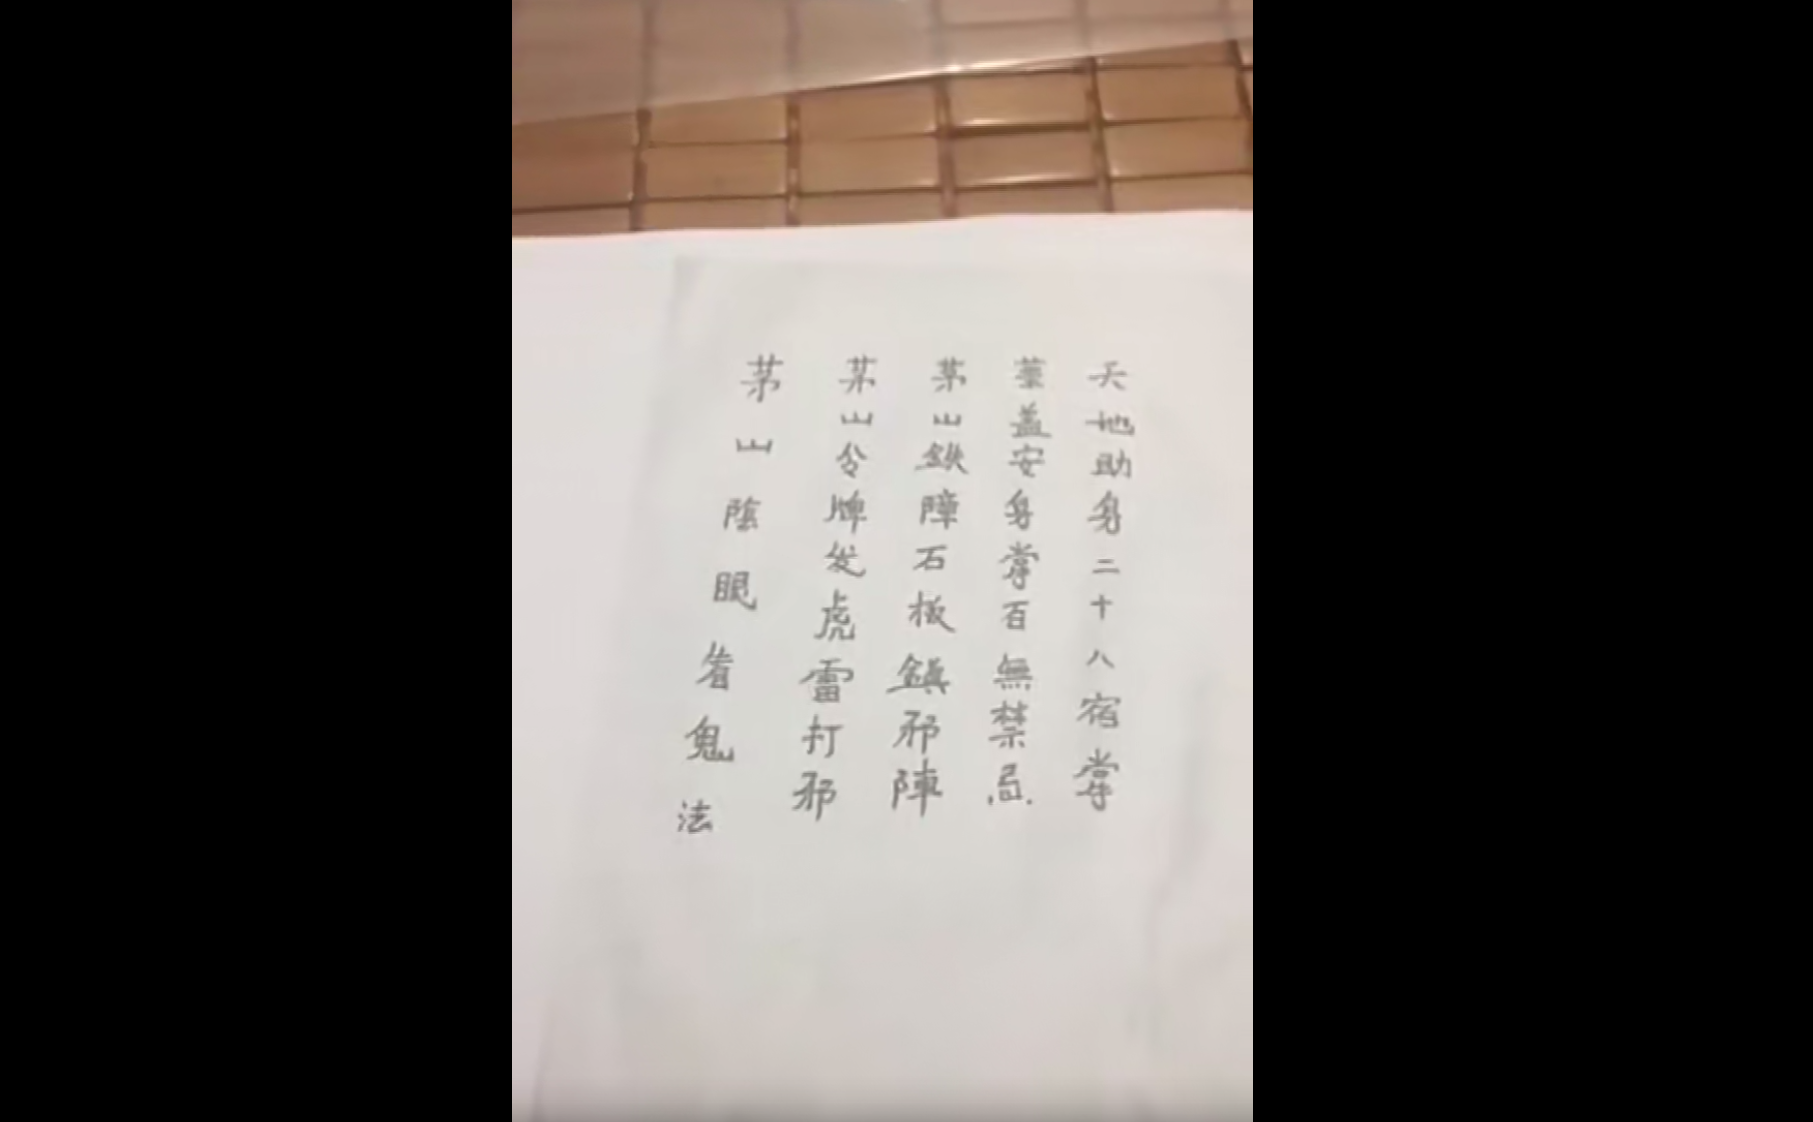 天地助身二十八宿掌
華盖安身掌百無禁忌
茅山鉄障石板鎮邪陣
茅山令牌发虎雷打邪
茅山陰眼看鬼法